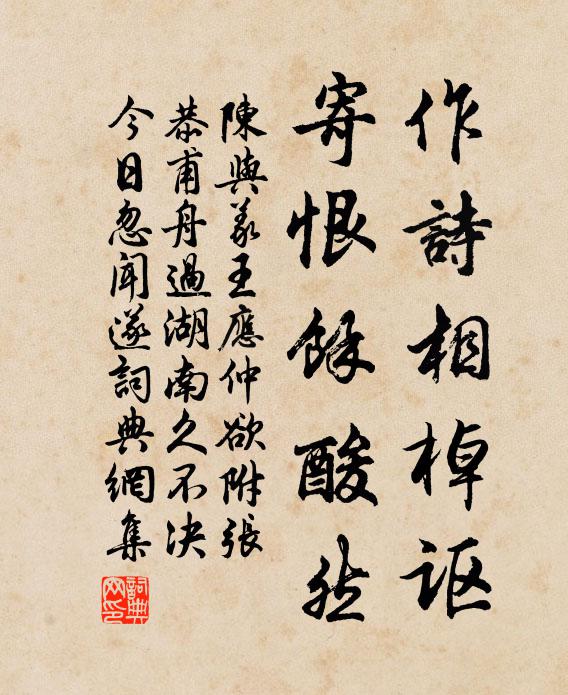 作詩相棹謳
寄恨餘酸然
陳與義王應仲欲附張
恭甫舟過湖南久不決
今日忽聞遂詞典網集
詞典網印